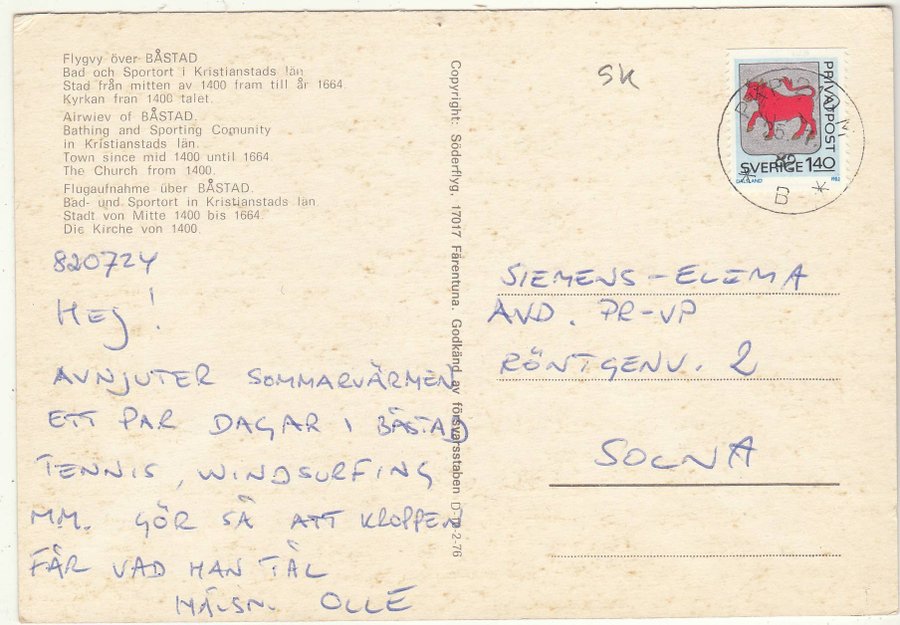 Flygvy över BÅSTAD
Bad och Sportort i Kristianstads län
Stad från mitten av 1400 fram till år 1664.
Kyrkan från 1400 talet.
Airwiev of BÅSTAD.
Bathing and Sporting Comunity
in Kristianstads län.
Town since mid 1400 until 1664
The Church from 1400.
Flugaufnahme über BÅSTAD.
Bad- und Sportort in Kristianstads län.
Stadt von Mitte 1400 bis 1664.
Die Kirche von 1400.
820724
HEJ!
AVNJUTER SOMMARVÄRMEN
ETT PAR DAGAR I BÅSTAD
TENNIS, WINDSURFING
MM. GÖR SÅ ATT KROPPEN
FÅR VAD MAN TÅL
HÄLSN. OLLE
Copyright: Söderflyg, 17017 Färentuna. Godkänd av försvarsstaben D-12-2-76
SK
PRIVATPOST
SVERIGE 1.40
DALSLAND 1982
B
SIEMENS-ELEMA
AVD. PR-VP
RÖNTGENV. 2
SOLNA